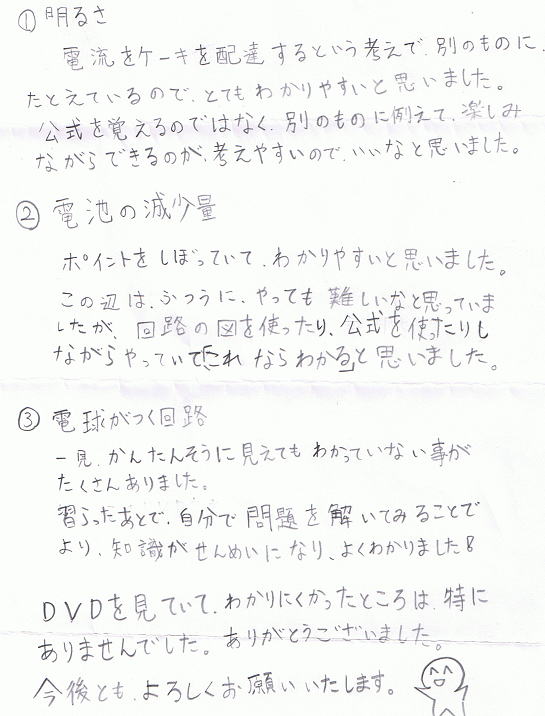 ① 明るさ
電流をケーキを配達するという考えで、別のものに、
たとえているので、とてもわかりやすいと思いました。
公式を覚えるのではなく、別のものに例えて、楽しみ
ながらできるのが、考えやすいので、いいなと思いました。
② 電池の減少量
ポイントをしぼっていて、わかりやすいと思いました。
この辺は、ふつうに、やっても難しいなと思っていま
したが、回路の図を使ったり、公式を使ったりし
ながらやっていて「これならわかる」と思いました。
③ 電球がつく回路
一見、かんたんそうに見えてもわかっていない事が
たくさんありました。
習ったあとで、自分で問題を解いてみることで
より、知識がせんめいになり、よくわかりました!
DVDを見ていて、わかりにくかったところは、特に
ありませんでした。ありがとうございました。
今後とも、よろしくお願いいたします。